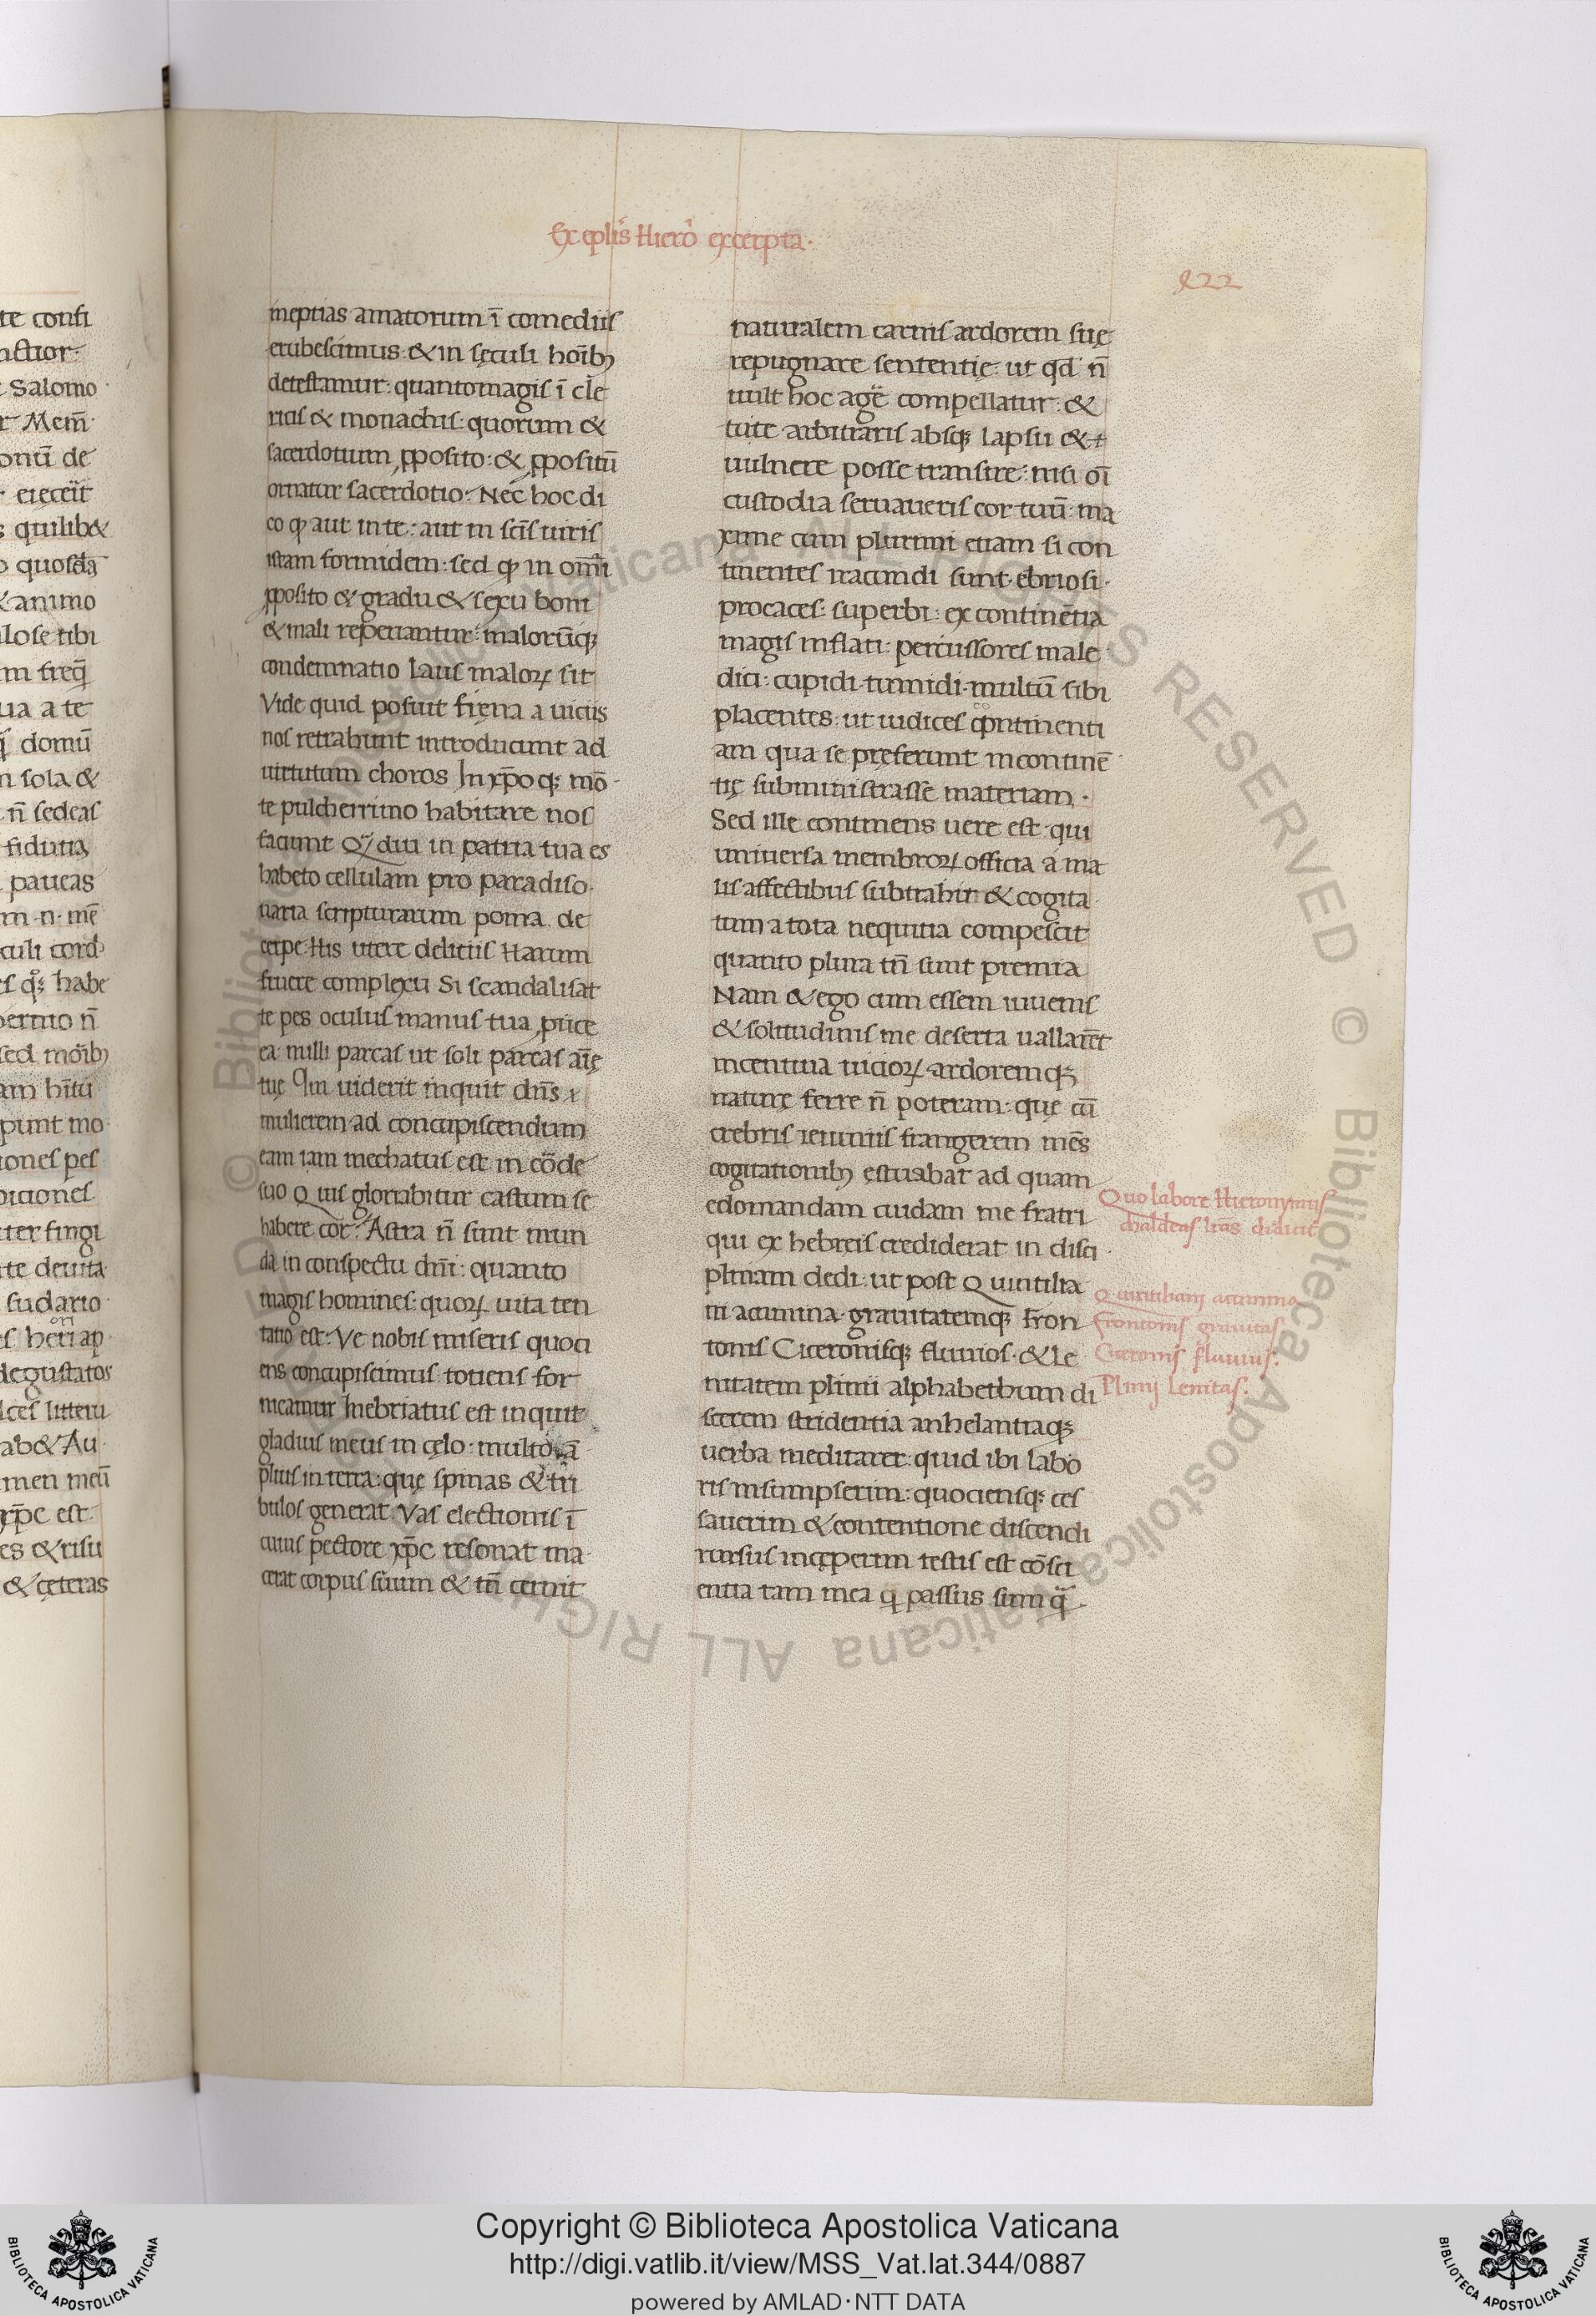 Ex eplis Hiero excerpta.
422
te confi
nctior
Salomo
Mem̄
onū de
eieceit
quilib&
quosdā
& animo
lose tibi
m freq̄
ua a te
domū
n sola &
n̄ sedeas
fidutia
paueas
m n mē
culi cord
es qꝫ habe
permo n̄
sed morib
am hītu
punt mo
iones pes
biciones
iter fingi
te deuita
sudario
es heri ap
degustatos
lces litteru
ab& Au
men meū
xp̄c est
es & risu
& cęteras
ineptias amatorum ī comediis
erubescimus: & in sęculi hoībꝫ
detestamur: quantomagis ī cle
ricis & monachis: quorum &
sacerdotium ꝓposito: & ꝓpositū
ornatur sacerdotio. Nec hoc di
co ꝙ aut in te: aut in scīs uiris
istam formidem: sed ꝙ in omī
ꝓposito & gradu & sexu boni
& mali reperiantur: malorūqꝫ
condemnatio laus maloꝝ sit
Vide quid posuit fręna a uiciis
nos retrahunt introducunt ad
uirtutum choros In xp̄o qꝫ mō
te pulcherrimo habitare nos
faciunt Q̄ diu in patria tua es
habeto cellulam pro paradiso
uaria scripturarum poma de
cerpe. His utere deliciis Harum
fruere complexu Si scandalisat
te pes oculus manus tua ꝓiice
ea nulli parcas ut soli parcas aīę
tuę Qui uiderit inquit dn̄s
mulierem ad concupiscendum
eam iam mechatus est in corde
suo Quis gloriabitur castum se
habere cor? Astra n̄ sunt mun
da in conspectu dn̄i: quanto
magis homines: quoꝝ uita ten
tatio est. Ve nobis miseris quoci
ens concupiscimus totiens for
nicamur Inebriatus est inquit
gladius meus in cęlo: multo ā
plius in terra: quę spinas & tri
bulos generat. Vas electionis ī
cuius pectore xp̄c resonat ma
cerat corpus suum & tn̄ cernit
naturalem carnis ardorem suę
repugnare sententię: ut qd n̄
uult hoc age compellatur: &
tute arbitraris absqꝫ lapsu &
uulnere posse transire: nisi oī
custodia seruaueris cor tuū: ma
xime cum plurimi etiam si con
tinentes iracundi sunt ebriosi.
procaces: superbi: ex continētia
magis inflati: percussores male
dici: cupidi. tumidi. multū sibi
placentes: ut iudices continenti
am qua se pręferunt incontinē
tię subministrasse materiam.
Sed ille continens uere est qui
uniuersa membroꝝ officia a ma
lis affectibus subtrahit & cogita
tum a tota nequitia compescit
quanto plura tn̄ sunt premia
Nam & ego cum essem iuuenis
& solitudinis me deserta uallarēt
incentiua uicioꝝ ardoremqꝫ
naturę ferre n̄ poteram: que cū
crebris ieiuniis frangerem mēs
cogitationibꝫ ęstuabat ad quam
edomandam cuidam me fratri
qui ex hebreis crediderat in disci
plinam dedi: ut post Quintilia
ni acumina grauitatemqꝫ Fron
tonis Ciceronisqꝫ fluuios. & le
nitatem plinii alphabethum di
scerem stridentia anhelantiaqꝫ
uerba meditarer: quid ibi labo
ris insumpserim: quociensqꝫ ces
sauerim & contentione discendi
rursus incęperim testis est cōsci
entia tam mea q̄ passus sum q̄
Quo labore Hieronymus
chaldeas lr̄as didicit
Quintiliani acumina
Frontonis grauitas
Ciceronis fluuius:
Plinij lenitas:
© Biblioteca Apostolica Vaticana ALL RIGHTS RESERVED © Biblioteca Apostolica Vaticana ALL RIGHTS RESERVED
Copyright © Biblioteca Apostolica Vaticana
http://digi.vatlib.it/view/MSS_Vat.lat.344/0887
powered by AMLAD·NTT DATA
BIBLIOTECA APOSTOLICA VATICANA
BIBLIOTECA APOSTOLICA VATICANA